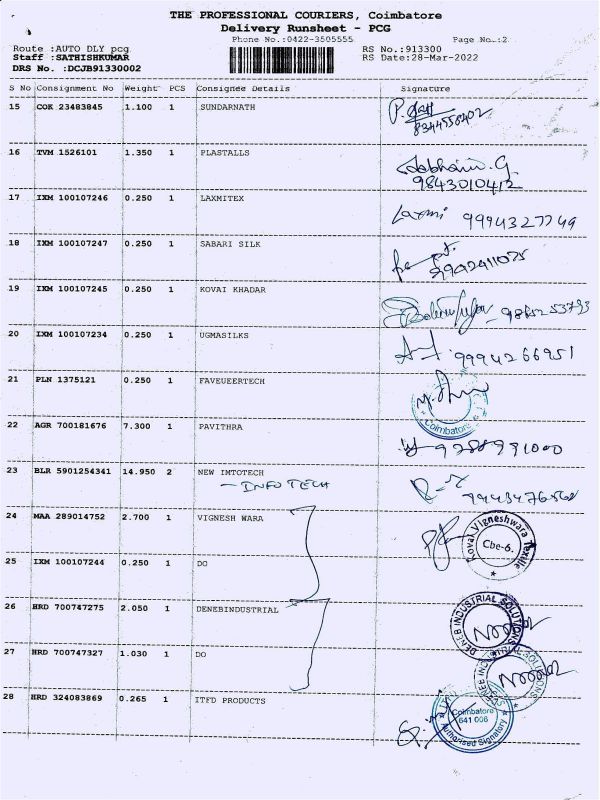 THE PROFESSIONAL COURIERS, Coimbatore
Delivery Runsheet - PCG
Phone No.:0422-3505555 Page No.:2
Route :AUTO DLY pcg RS No.:913300
Staff :SATHISHKUMAR RS Date:28-Mar-2022
DRS No. :DCJB91330002
S No Consignment No Weight PCS Consignee Details Signature
15 COK 23483845 1.100 1 SUNDARNATH
16 TVM 1526101 1.350 1 PLASTALLS
9843010412
17 IXM 100107246 0.250 1 LAXMITEX Laxmi 9994327749
18 IXM 100107247 0.250 1 SABARI SILK
19 IXM 100107245 0.250 1 KOVAI KHADAR
20 IXM 100107234 0.250 1 UGMASILKS 9994266951
21 PLN 1375121 0.250 1 FAVEUEERTECH
Coimbatore
22 AGR 700181676 7.300 1 PAVITHRA
23 BLR 5901254341 14.950 2 NEW IMTOTECH
- INFO TECH
24 MAA 289014752 2.700 1 VIGNESH WARA
Royal Vigneshwara Textile
Cbe-6.
25 IXM 100107244 0.250 1 DO
26 HRD 700747275 2.050 1 DENEBINDUSTRIAL
DENEB INDUSTRIAL SOLUTIONS
27 HRD 700747327 1.030 1 DO
DENEB INDUSTRIAL SOLUTIONS
28 HRD 324083869 0.265 1 ITFD PRODUCTS
Coimbatore
641 006
Authorised Signatory